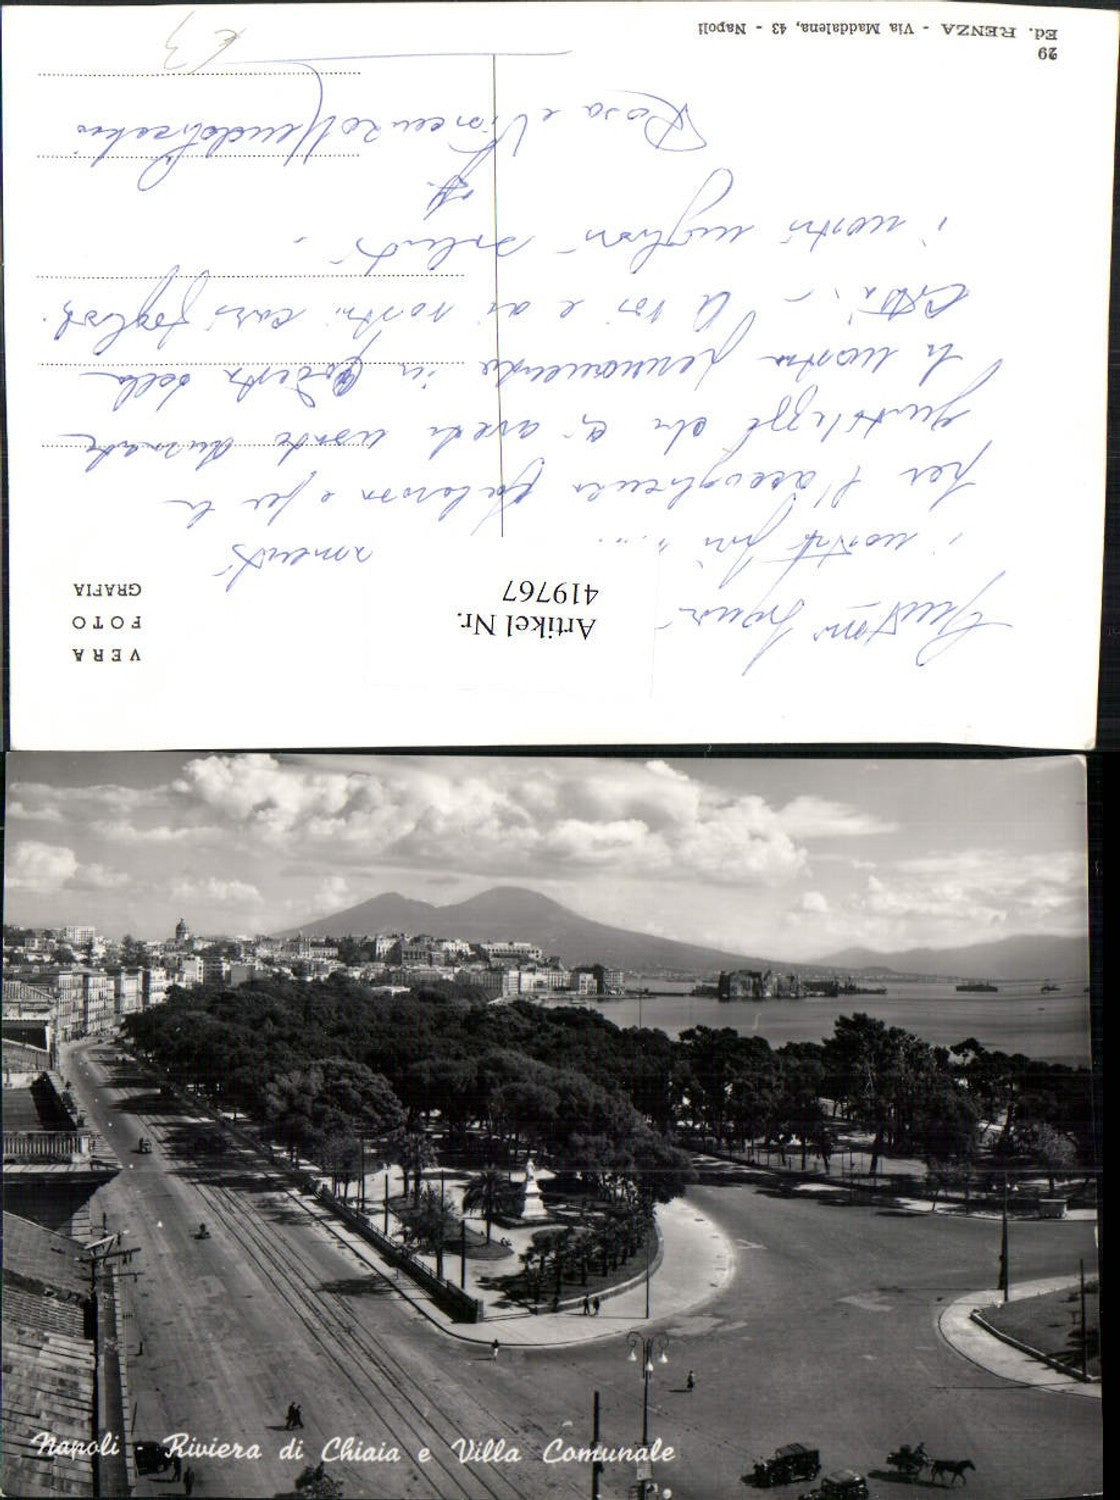 Gent.mi Signori
i nostri più .....
amenti
per l'accoglienza e per la
gentilezza che ci avete usato durante
la nostra permanenza in codesta bella
città. - A voi e ai vostri cari
i nostri migliori saluti. -
Rosa e Vincenzo
€3
VERA
FOTO
GRAFIA
Artikel Nr.
419767
29
Ed. RENZA - Via Maddalena, 43 - Napoli
Napoli - Riviera di Chiaia e Villa Comunale